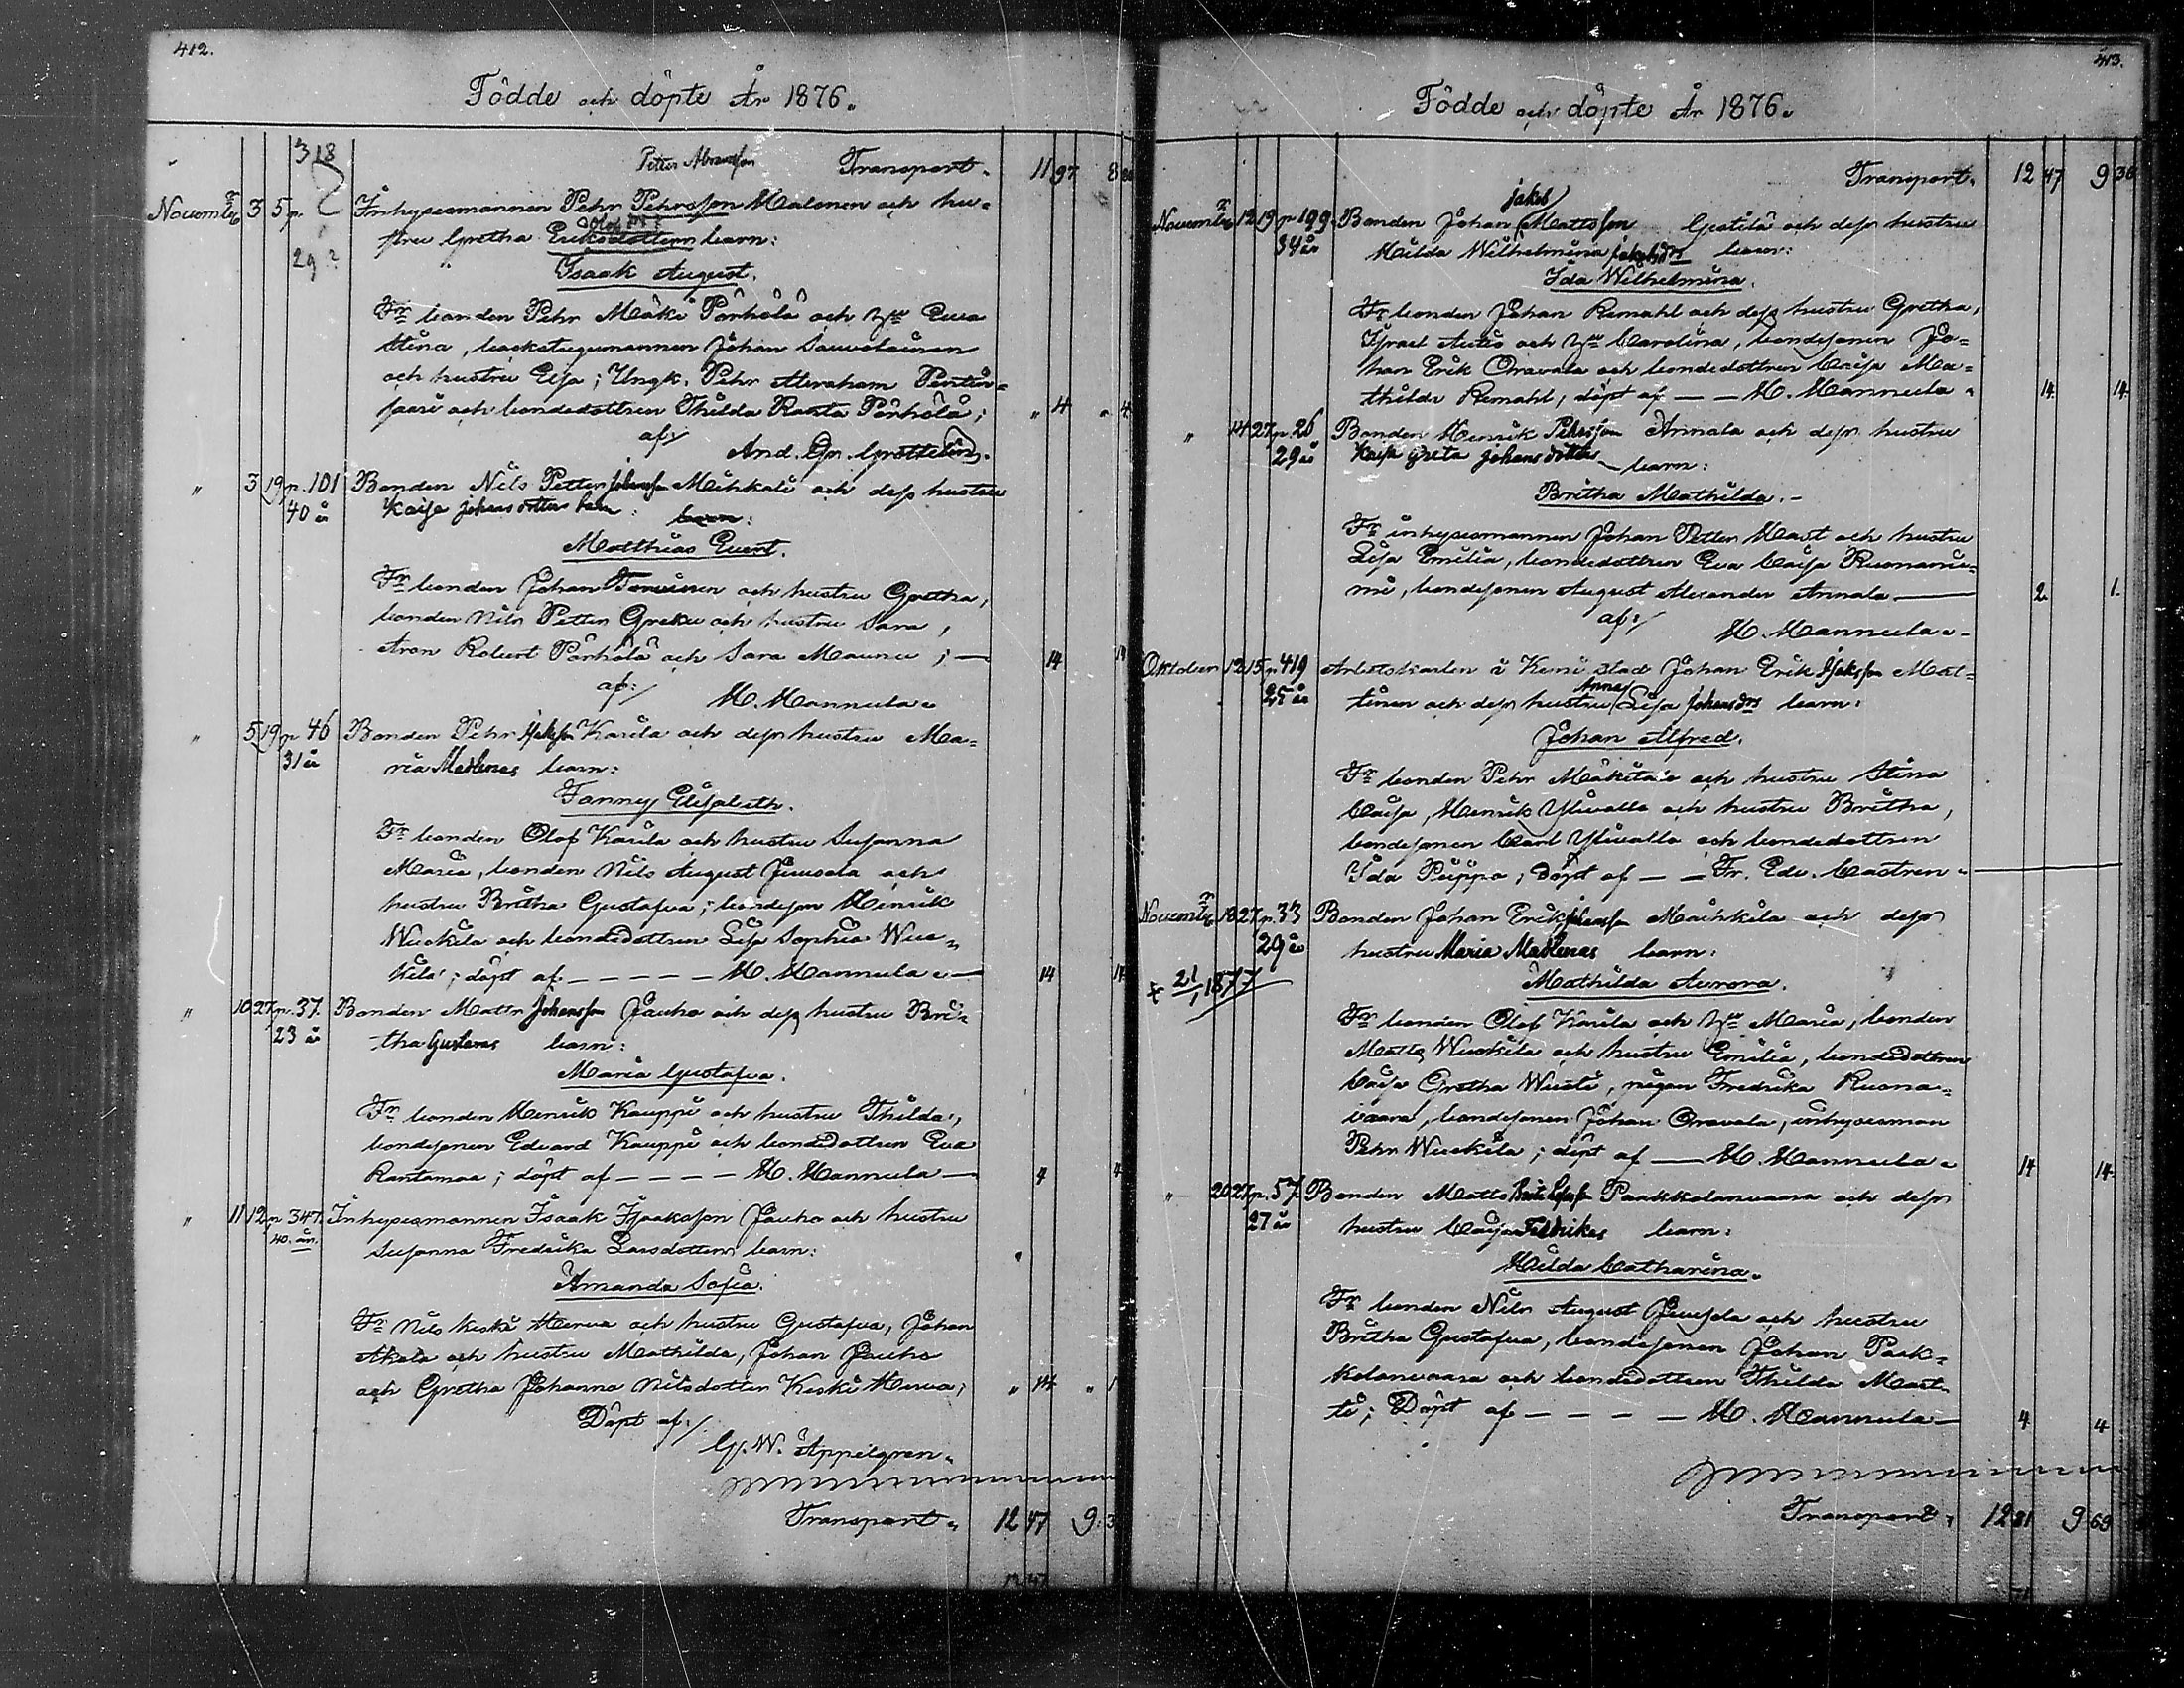 412.
Födde och döpte År 1876.
318
Transport. 11 97 8
Novembr 3 5 p. Inhysesmannen Pehr Pehrsson Malenen och hu-
stru Gretha Eriksdotters barn:
29?
Isaak August.
Fr bonden Pehr Mäki Pörhölä och hu Eva
Stina, backstugumannen Johan Sauvolainen
och hustru Elsa; Yngk. Pehr Abraham Pentin-
saari och bondedottren Thilda Ranta Pörhölä; " 4 " 4
af/
And. Gr.
" 3 19 p. 101 Bonden Nils Petter Johansson Mihkali och dess hustru
40 år Kaisa Johansdotters barn: barn:
Matthias Evert.
Fr bonden Johan Torvinen och hustru Gretha,
bonden Nils Petter Greku och hustru Sara,
Aron Robert Pörhölä och Sara Maunu; — 14
af:/ H. Hannula.
" 5 19 p. 46 Bonden Pehr Karila och dess hustru Ma-
31 år ria barn:
Fanny Elisabeth.
Fr bonden Olof Karila och hustru Susanna
Maria, bonden Nils August Juusola och
hustru Britha Gustafva; bondeson Henrik
Wuokila och bondedottren Lisa Sophia Wuo-
kila; döpt af — — — — — H. Hannula. — 14
" 10 27 p. 37. Bonden Matts Johansson Jauho och dess hustru Bri-
23 år tha Gustavas barn:
Maria Gustafva.
Fr bonden Henrik Kauppi och hustru Thilda,
bondesonen Edvard Kauppi och bondedottren Eva
Rantamaa; döpt af — — — — H. Hannula — 4 4
" 11 12 p. 347. Inhysesmannen Isaak Isaaksson Jauho och hustru
40. år. Susanna Fredrika Larsdotters barn:
Amanda Sofia.
Fr Nils Keski Herva och hustru Gustafva, Johan
Akola och hustru Mathilda, Johan Jauho
och Gretha Johanna Nilsdotter Keski Herva; " 14 "
Döpt af:/
G. W. Appelgren.
Transport. 12 47 9.
413.
Födde och döpte År 1876.
Transport. 12 47 9
Jakob
Novembr 12 19 p. 199. Bonden Johan Mattsson och dess hustru
34 år Hilda Wilhelmina Jakobsdrs barn:
Ida Wilhelmina.
Fr bonden Johan Remahl och dess hustru Gretha,
Isræl Autio och hu Carolina, bondesonen Jo-
han Erik Oravala och bondedottren Caisa Ma-
thilda Remahl; döpt af — — H. Hannula. 14. 14.
" 14 27 p. 26 Bonden Henrik Pehrsson Annala och dess hustru
29 år Kaisa Greta Johansdotters barn:
Britha Mathilda. —
Fr inhysesmannen Johan Petter Hast och hustru
Lisa Emilia, bondedottren Eva Caisa Ruonanie-
mi, bondesonen August Alexander Annala — 2. 1.
af:/ H. Hannula. —
Oktober 12 15 p. 419 Arbetskarlen i Kemi stad Johan Erik Isaksson Mat-
Anna
25 år tinen och dess hustru Lisa Johansdrs barn:
Johan Alfred.
Fr bonden Pehr Mäkitalo och hustru Stina
Caisa, Henrik Ylivalla och hustru Britha,
bondesonen Carl Ylivalla och bondedottren
Ida Piippo; Döpt af — — Fr. Edv. Castren.
Novembr 18 27 p. 33 Bonden Johan Erik Johansson Maihkila och dess
29 år hustru Maria barn:
+ 21/1 1877
Mathilda Aurora.
Fr bonden Olof Karila och hu Maria, bonden
Matts Wuokila och hustru Emilia, bondedottren
Caisa Gretha Wiiali, pigan Fredrika Ruona-
vaara, bondesonen Johan Oravala, inhysesman
Pehr Wuokila; döpt af — H. Hannula. 14 14.
" 20 27 p. 57 Bonden Matts Paakkolanvaara och dess
27 år hustru Caisa Fredrikas barn:
Hilda Catharina.
Fr bonden Nils August Juusola och hustru
Britha Gustafva, bondesonen Johan Paak-
kolanvaara och bondedottren Thilda Mart-
ti; Döpt af — — — — H. Hannula — 4 4
Transport. 12 81 9 69